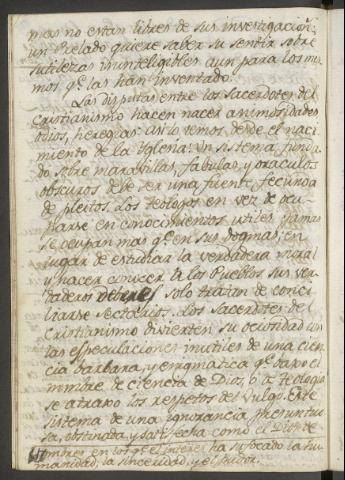 mas no estan libres de sus investigacion^s
un Prelado quiere saber su sentir sobre
sutilezas ininteligibles aun para los mis
mos q.^e las han inventado.
Las disputas entre los Sacerdotes del
Cristianismo hacen nacer animosidades
odios, heregias: asi lo vemos desde el naci
miento de la Yglesia. Un sistema funda
do sobre maravillas, fabulas, y oraculos
obscuros debe ser una fuente fecunda
de pleitos. Los Teologos en vez de ocu
parse en conocimientos utiles jamas
se ocupan mas q.^e en sus dogmas; en
lugar de estudiar la verdadera moral
y hacer conocer a los Pueblos sus ver
daderos deberes solo tratan de conci
liarse sectarios. Los Sacerdotes del
Cristianismo divierten su ociosidad con
las especulaciones inutiles de una cien
cia barbara, y enigmatica q.^e baxo el
nombre de ciencia de Dios, o de teologia
se atraxo los respetos del Vulgo. Este
sistema de una ignorancia presuntuo
sa, obstinada y satisfecha como el Dios de
hombres en los q.^e el interes ha sufocado la hu
manidad, la sinceridad, y el pudor.